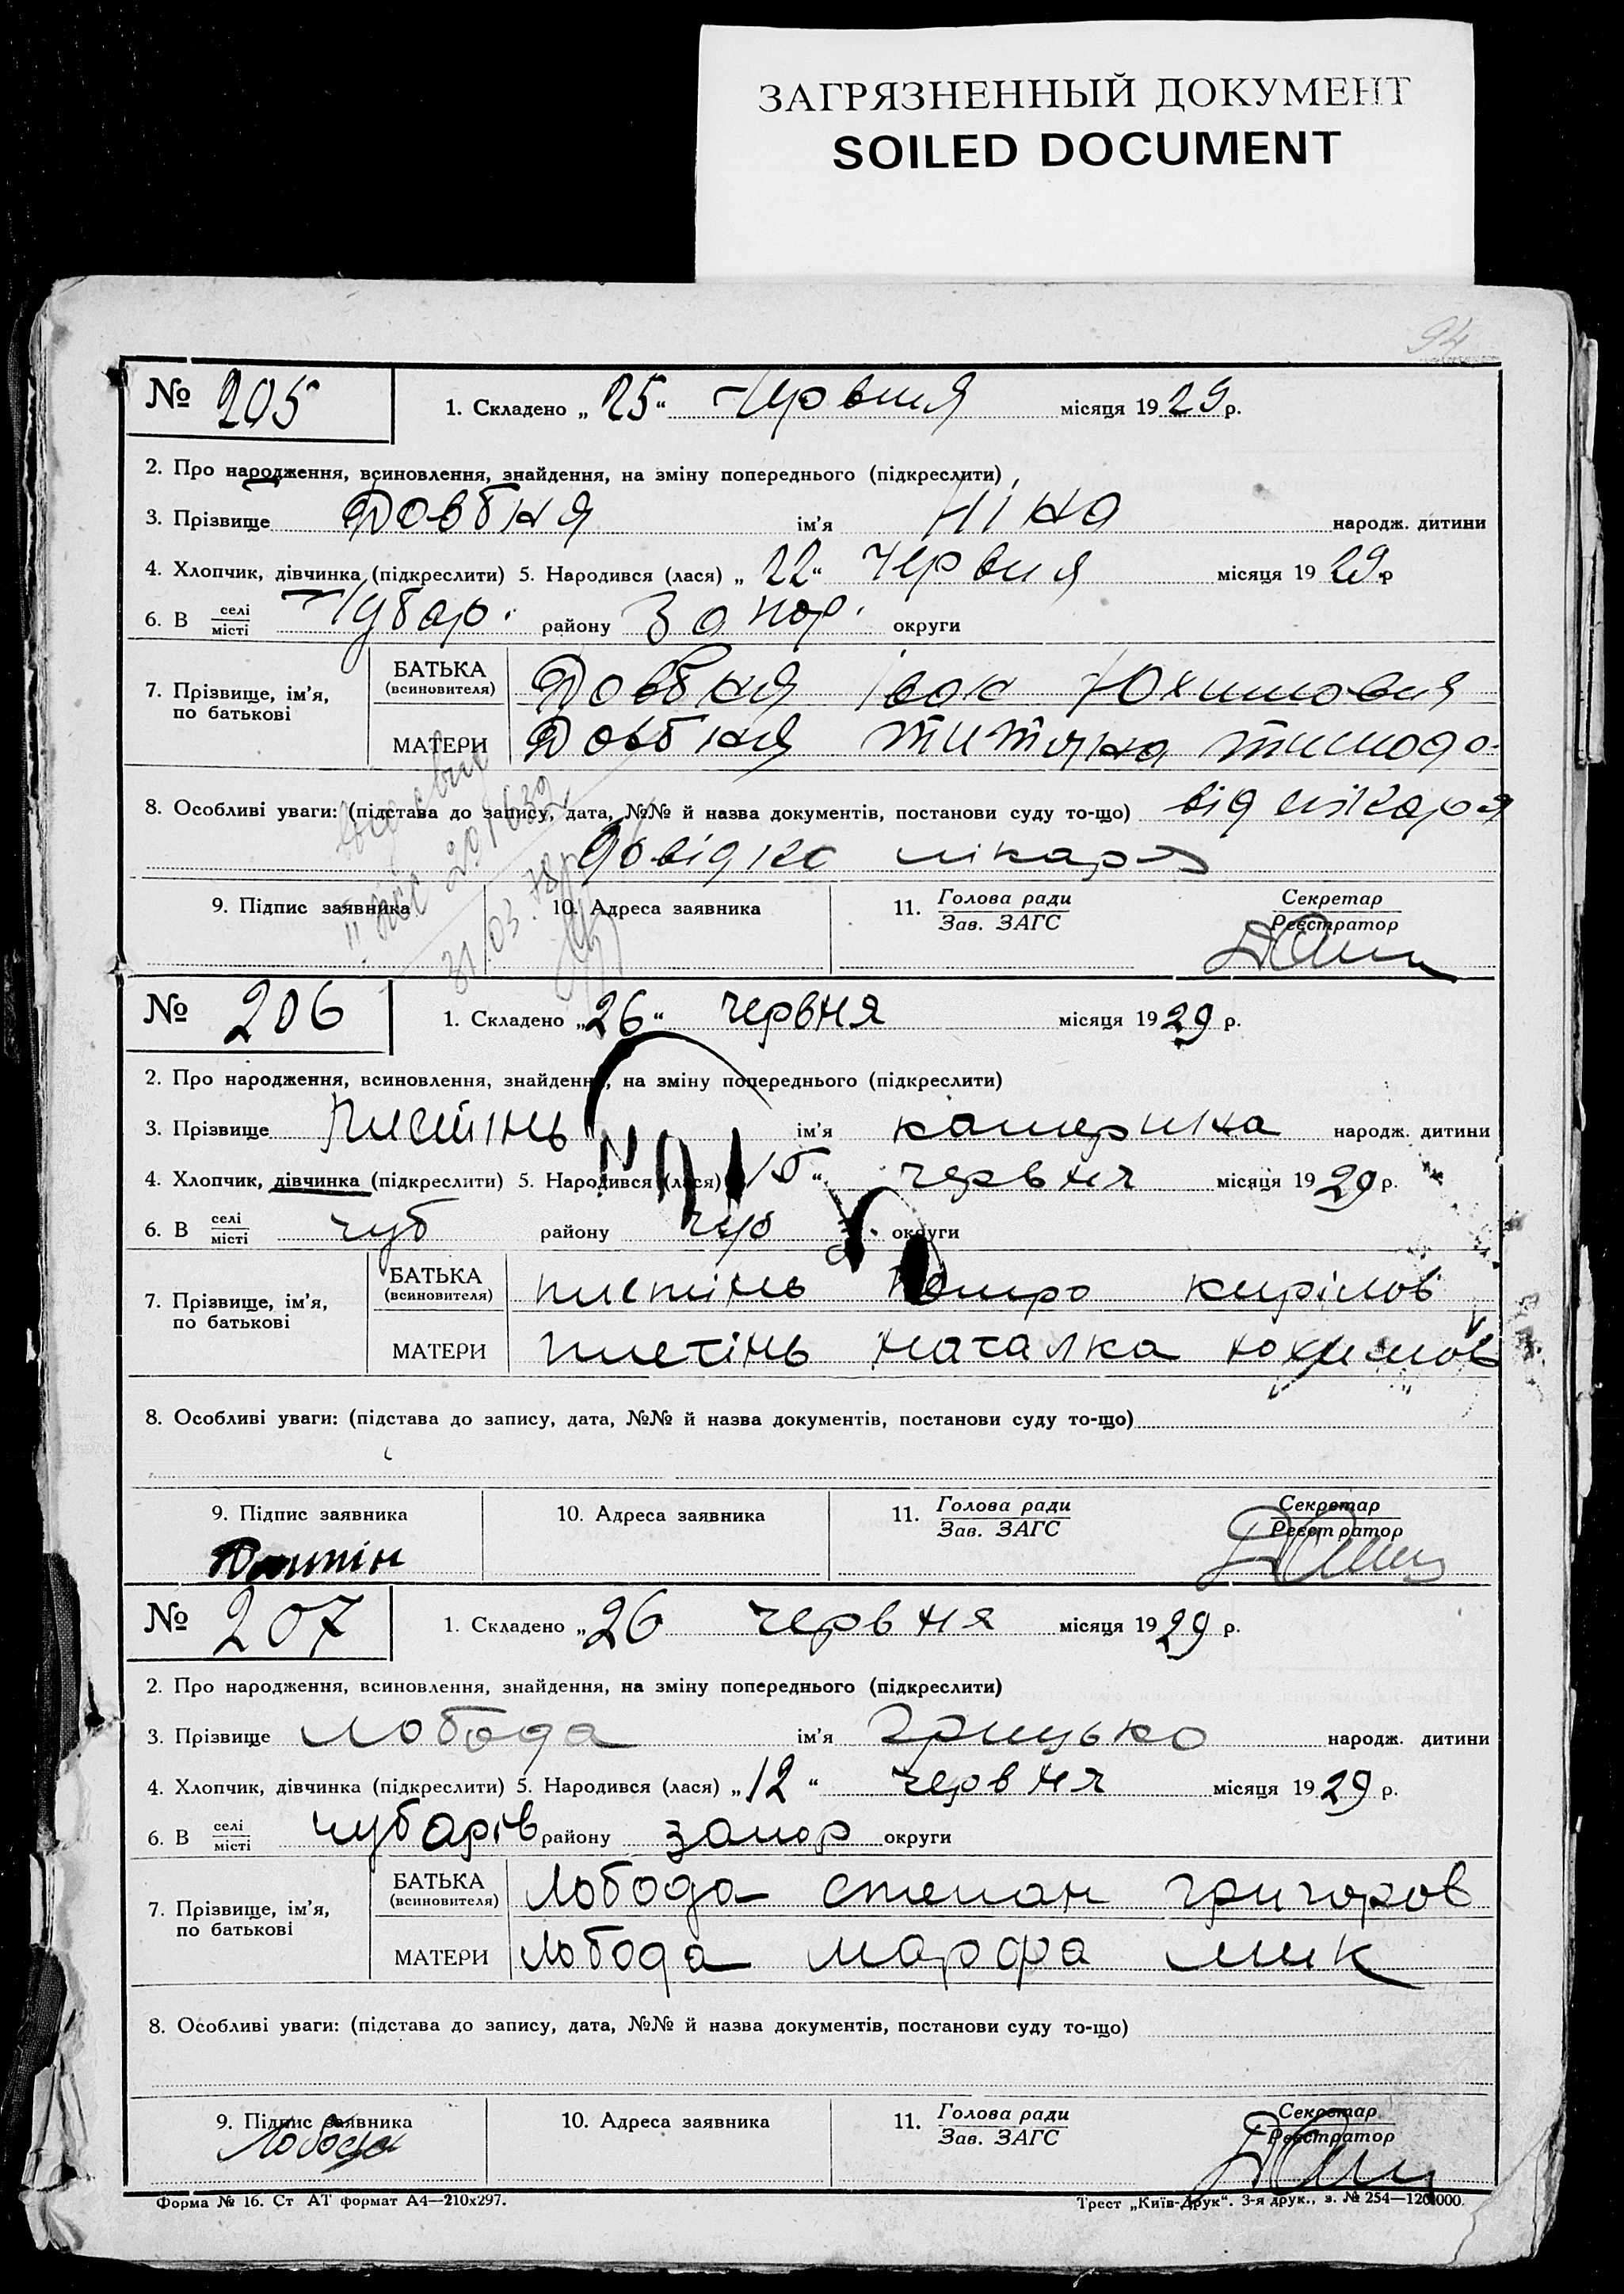 ЗАГРЯЗНЕННЫЙ ДОКУМЕНТ
SOILED DOCUMENT
94
№ 205 1. Складено „25“ Червня місяця 1929 р.
2. Про народження, всиновлення, знайдення, на зміну попереднього (підкреслити)
3. Прізвище Довбня ім'я Ніна народж. дитини
4. Хлопчик, дівчинка (підкреслити) 5. Народився (лася) „22“ Червня місяця 1929 р
6. В селі/місті Чубар. району Запор. округи
7. Прізвище, ім'я, по батькові БАТЬКА (всиновителя) Довбня Іван Юхимович
МАТЕРИ Довбня Титяна Тимофо.
8. Особливі уваги: (підстава до запису, дата, №№ й назва документів, постанови суду то-що) від лікаря
довідка лікаря
9. Підпис заявника 10. Адреса заявника 11. Голова ради/Зав. ЗАГС Секретар/Реєстратор
31.03.78р
№ 206 1. Складено „26“ червня місяця 1929 р.
2. Про народження, всиновлення, знайдення, на зміну попереднього (підкреслити)
3. Прізвище Плетінь ім'я катерина народж. дитини
4. Хлопчик, дівчинка (підкреслити) 5. Народився (лася) 15“ червня місяця 1929 р.
6. В селі/місті чуб району чуб округи
7. Прізвище, ім'я, по батькові БАТЬКА (всиновителя) плетінь Петро кирілов
МАТЕРИ плетінь наталка юхимов
8. Особливі уваги: (підстава до запису, дата, №№ й назва документів, постанови суду то-що)
9. Підпис заявника 10. Адреса заявника 11. Голова ради/Зав. ЗАГС Секретар/Реєстратор
№ 207 1. Складено „26 червня місяця 1929 р.
2. Про народження, всиновлення, знайдення, на зміну попереднього (підкреслити)
3. Прізвище лобода ім'я Грицько народж. дитини
4. Хлопчик, дівчинка (підкреслити) 5. Народився (лася) „12“ червня місяця 1929 р.
6. В селі/місті чубарів району запор округи
7. Прізвище, ім'я, по батькові БАТЬКА (всиновителя) Лобода степан григоров
МАТЕРИ Лобода марфа мик
8. Особливі уваги: (підстава до запису, дата, №№ й назва документів, постанови суду то-що)
9. Підпис заявника 10. Адреса заявника 11. Голова ради/Зав. ЗАГС Секретар/Реєстратор
Лобода
Форма № 16. Ст АТ формат А4—210х297. Трест „Київ-Друк“. 3-я друк., з. № 254—120.000.